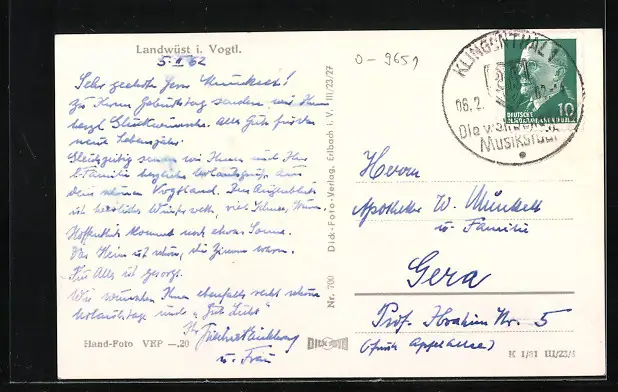 Landwüst i. Vogtl.
5. II 62
Sehr geehrter Herr Munkelt!
Zu Ihrem Geburtstag senden wir Ihnen
herzl. Glückwünsche. Alles Gute für das
neue Lebensjahr.
Gleichzeitig senden wir Ihnen und Ihrer
l. Familie herzliche Urlaubsgrüße aus
dem schönen Vogtland. Im Augenblick
ist herrliches Winterwetter, viel Schnee,
Hoffentlich kommt noch etwas Sonne.
Das Heim ist schön, die Zimmer warm.
Für Alles ist gesorgt.
Wir wünschen Ihnen ebenfalls recht schöne
Urlaubstage und "Gut
Ihr
u. Frau
Hand-Foto VEP —.20
Nr. 700 Dick-Foto-Verlag, Erlbach i. V. III/23/27
0-9651
KLINGENTHAL 1
06.2.
Die
Musikstadt
DEUTSCHE
10
Herrn
Apotheker W. Munkelt
u. Familie
Gera
Prof. Ibrahim Nr. 5
K 1/81 III/23/4